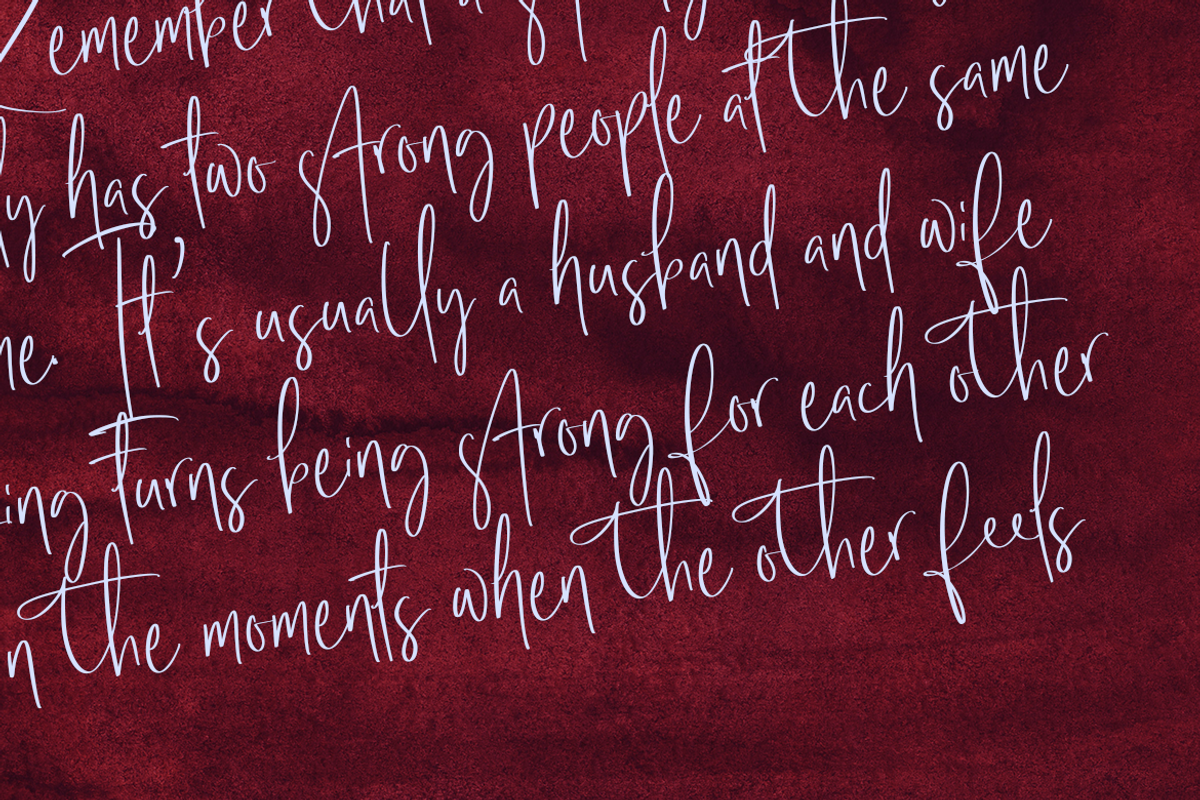 emember that a
has two strong people at the same
It's usually a husband and wife
turns being strong for each other
the moments when the other feels